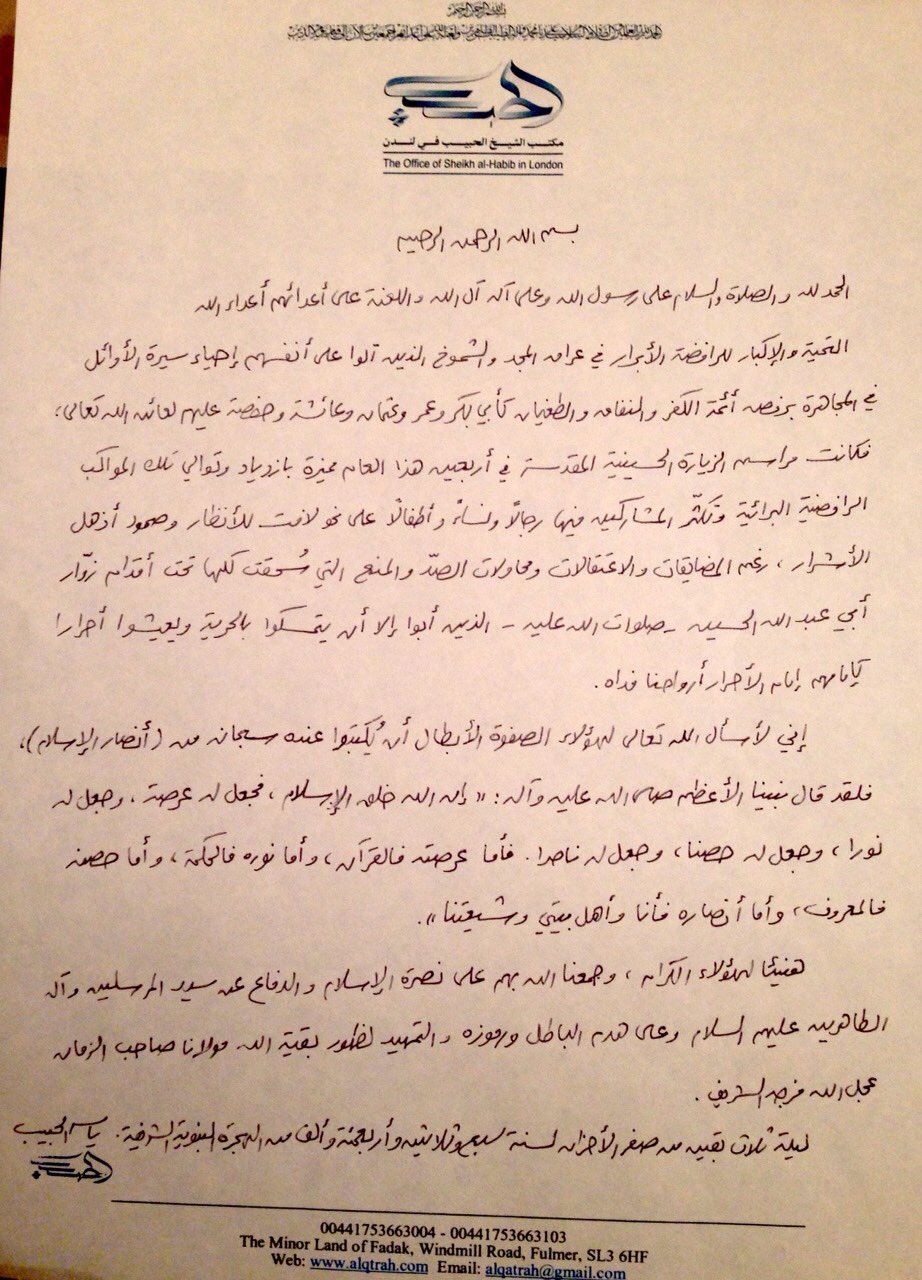 بسم الله الرحمن الرحيم
الحبيب
مكتب الشيخ الحبيب في لندن
The Office of Sheikh al-Habib in London
بسم الله الرحمن الرحيم
الحمد لله والصلاة والسلام على رسول الله وعلى آله آل الله واللعنة على أعدائهم أعداء الله
التحية والإكبار للرافضة الأبرار في عراق المجد والشموخ الذين آلوا على أنفسهم إحياء سيرة الأوائل
في المجاهرة برفض أئمة الكفر والنفاق والطغيان كأبي بكر وعمر وعثمان وعائشة وحفصة عليهم لعائن الله تعالى،
فكانت مراسم الزيارة الحسينية المقدسة في أربعين هذا العام مميزة بازدياد وتوالي تلك المواكب
الرافضية البرائية وتكثّر المشاركين فيها رجالًا ونساءً وأطفالًا على نحو لافت للأنظار وصمود أذهل
الأشرار، رغم المضايقات والاعتقالات ومحاولات الصدّ والمنع التي سُحقت كلها تحت أقدام زوّار
أبي عبد الله الحسين - صلوات الله عليه - الذين أبوا إلا أن يتمسكوا بالحرية ويعيشوا أحرارا
كإمامهم إمام الأحرار أرواحنا فداه.
إني لأسأل الله تعالى لهؤلاء الصفوة الأبطال أن يُكتبوا عنده سبحانه من (أنصار الإسلام)،
فلقد قال نبينا الأعظم صلى الله عليه وآله: «إن الله خلق الإسلام، فجعل له عرصة، وجعل له
نورا، وجعل له حصنا، وجعل له ناصرا. فأما عرصته فالقرآن، وأما نوره فالحكمة، وأما حصنه
فالمعروف، وأما أنصاره فأنا وأهل بيتي وشيعتنا».
هنيئا لهؤلاء الكرام، وجمعنا الله بهم على نصرة الإسلام والدفاع عن سيد المرسلين وآله
الطاهرين عليهم السلام وعلى هدم الباطل ورموزه والتمهيد لظهور بقية الله مولانا صاحب الزمان
عجل الله فرجه الشريف.
ليلة ثلاث بقين من صفر الأحزان لسنة سبع وثلاثين وأربعمئة وألف من الهجرة النبوية الشريفة. ياسر الحبيب
الحبيب
00441753663004 - 00441753663103
The Minor Land of Fadak, Windmill Road, Fulmer, SL3 6HF
Web: www.alqtrah.com Email: alqatrah@gmail.com